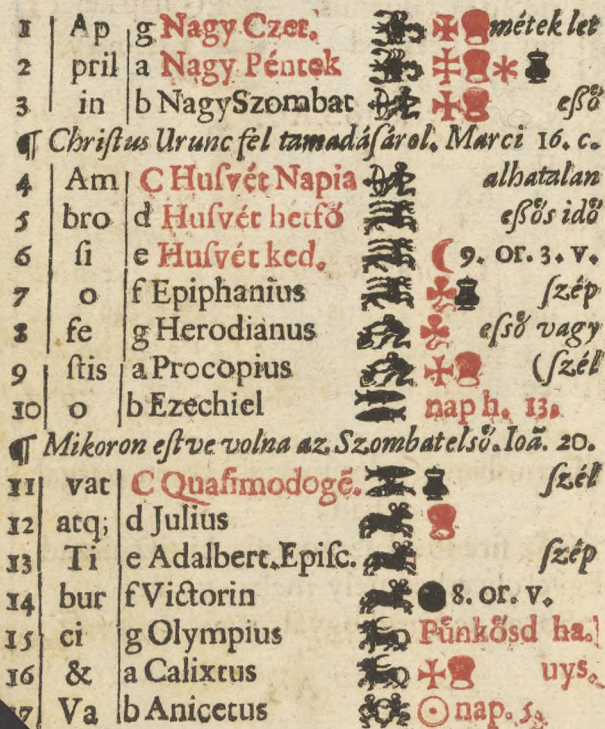 1 Ap g Nagy Czöt. métek let
2 pril a Nagy Péntek
3 in b NagySzombat eßő
¶ Chriſtus Urunc fel tamadáſárol. Marci 16. c.
4 Am C Huſvét Napia alhatalan
5 bro d Huſvét hetfő eßős idő
6 ſi e Huſvét ked. 9. or. 3. v.
7 o f Epiphanius ſzép
8 fe g Herodianus eſső vagy
9 ſtis a Procopius (ſzél
10 o b Ezechiel nap h. 13.
¶ Mikoron eſtve volna az Szombat elsö. Ioã. 20.
11 vat C Quaſimodogẽ. ſzél
12 atq; d Julius
13 Ti e Adalbert. Epiſc. ſzép
14 bur f Victorin 8. or. v.
15 ci g Olympius Pünkösd ha.
16 & a Calixtus uys.
17 Va b Anicetus nap. 5.